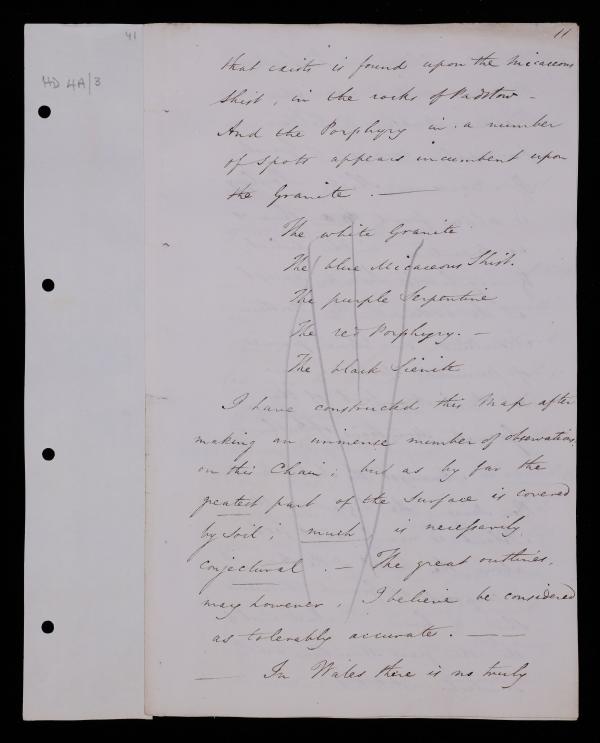 41
HD 4A/3
11
that exists is found upon the Micaceous
Shist, in the rocks of Padstow –
And the Porphyry in a number
of spots appears incumbent upon
the Granite. —
The white Granite
The blue Micaceous Shist.
The purple Serpentine
The red Porphyry. –
The black Siënite
I have constructed this Map after
making an immense number of observations
on this Chain; but as by far the
greatest part of the surface is covered
by Soil; much is necessarily
conjectural. – The great outlines,
may however, I believe be considered
as tolerably accurate. — —
— In Wales there is no truly